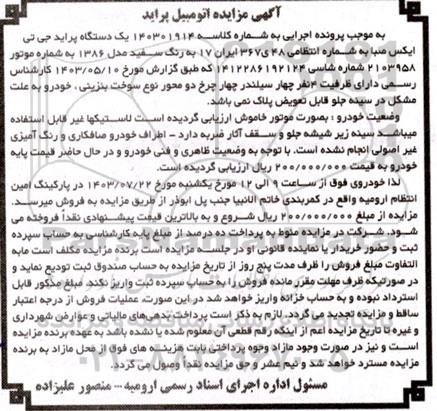 آگهی مزایده اتومبیل پراید
به موجب پرونده اجرایی به شماره کلاسه ۱۴۰۳۰۱۹۱۴ یک دستگاه پراید جی تی
ایکس صبا به شماره انتظامی ۴۸ ی۳۶۷ ایران ۱۷ به رنگ سفید مدل ۱۳۸۶ به شماره موتور
۲۱۰۳۹۵۸ شماره شاسی ۱۴۱۲۲۸۶۱۹۲۱۲۴ که طبق گزارش مورخ ۱۴۰۳/۰۵/۱۰ کارشناس
رسمی دارای ظرفیت ۴نفر چهار سیلندر چهار چرخ دو محور نوع سوخت بنزینی ، خودرو به علت
مشکل در سینه جلو قابل تعویض پلاک نمی باشد.
وضعیت خودرو : بصورت موتور خاموش ارزیابی گردیده است لاستیکها غیر قابل استفاده
میباشد سینه زیر شیشه جلو و سقف آثار ضربه دارد - اطراف خودرو صافکاری و رنگ آمیزی
غیر اصولی انجام نشده است. با توجه به وضعیت ظاهری و فنی خودرو و در حال حاضر قیمت پایه
خودرو به قیمت ۲۰۰/۰۰۰/۰۰۰ ریال ارزیابی گردیده است.
لذا خودروی فوق از ساعت ۹ الی ۱۲ مورخ یکشنبه مورخ ۱۴۰۳/۰۷/۲۲ در پارکینگ امین
انتظام ارومیه واقع در کمربندی خاتم الانبیا جنب پل ابوذر از طریق مزایده به فروش میرسد.
مزایده از مبلغ ۲۰۰/۰۰۰/۰۰۰ ریال شروع و به بالاترین قیمت پیشنهادی نقداً فروخته می
شود. شرکت در مزایده منوط به پرداخت ده درصد از مبلغ پایه کارشناسی به حساب سپرده
ثبت و حضور خریدار یا نماینده قانونی او در جلسه مزایده است برنده مزایده مکلف است مابه
التفاوت مبلغ فروش را ظرف مدت پنج روز از تاریخ مزایده به حساب صندوق ثبت تودیع نماید و
در صورتیکه ظرف مهلت مقرر مانده فروش را به حساب سپرده ثبت واریز نکند. مبلغ مذکور قابل
استرداد نبوده و به حساب خزانه واریز خواهد شد در این صورت، عملیات فروش از درجه اعتبار
ساقط و مزایده تجدید می گردد. لازم به ذکر است پرداخت بدهی های مالیاتی و عوارض شهرداری
و غیره تا تاریخ مزایده اعم از اینکه رقم قطعی آن معلوم شده یا نشده باشد به عهده برنده مزایده
است و نیز در صورت وجود مازاد وجوه پرداختی بابت هزینه های فوق از محل مازاد به برنده
مزایده مسترد خواهد شد و نیم عشر و حق مزایده نقداً وصول می گردد.
مسئول اداره اجرای اسناد رسمی ارومیه --- منصور علیزاده